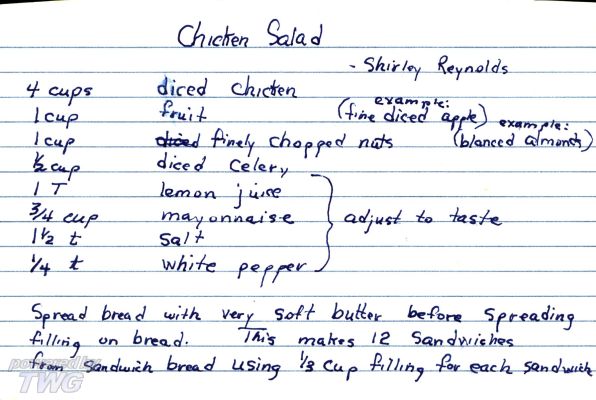 Chicken Salad
- Shirley Reynolds
4 cups diced chicken
1 cup fruit (example: fine diced apple)
1 cup diced finely chopped nuts (example: blanced almonds)
1/2 cup diced celery
1 T lemon juice
3/4 cup mayonnaise } adjust to taste
1 1/2 t salt
1/4 t white pepper
Spread bread with very soft butter before spreading
filling on bread. This makes 12 sandwiches
from sandwich bread using 1/3 cup filling for each sandwich
powered by
TWG